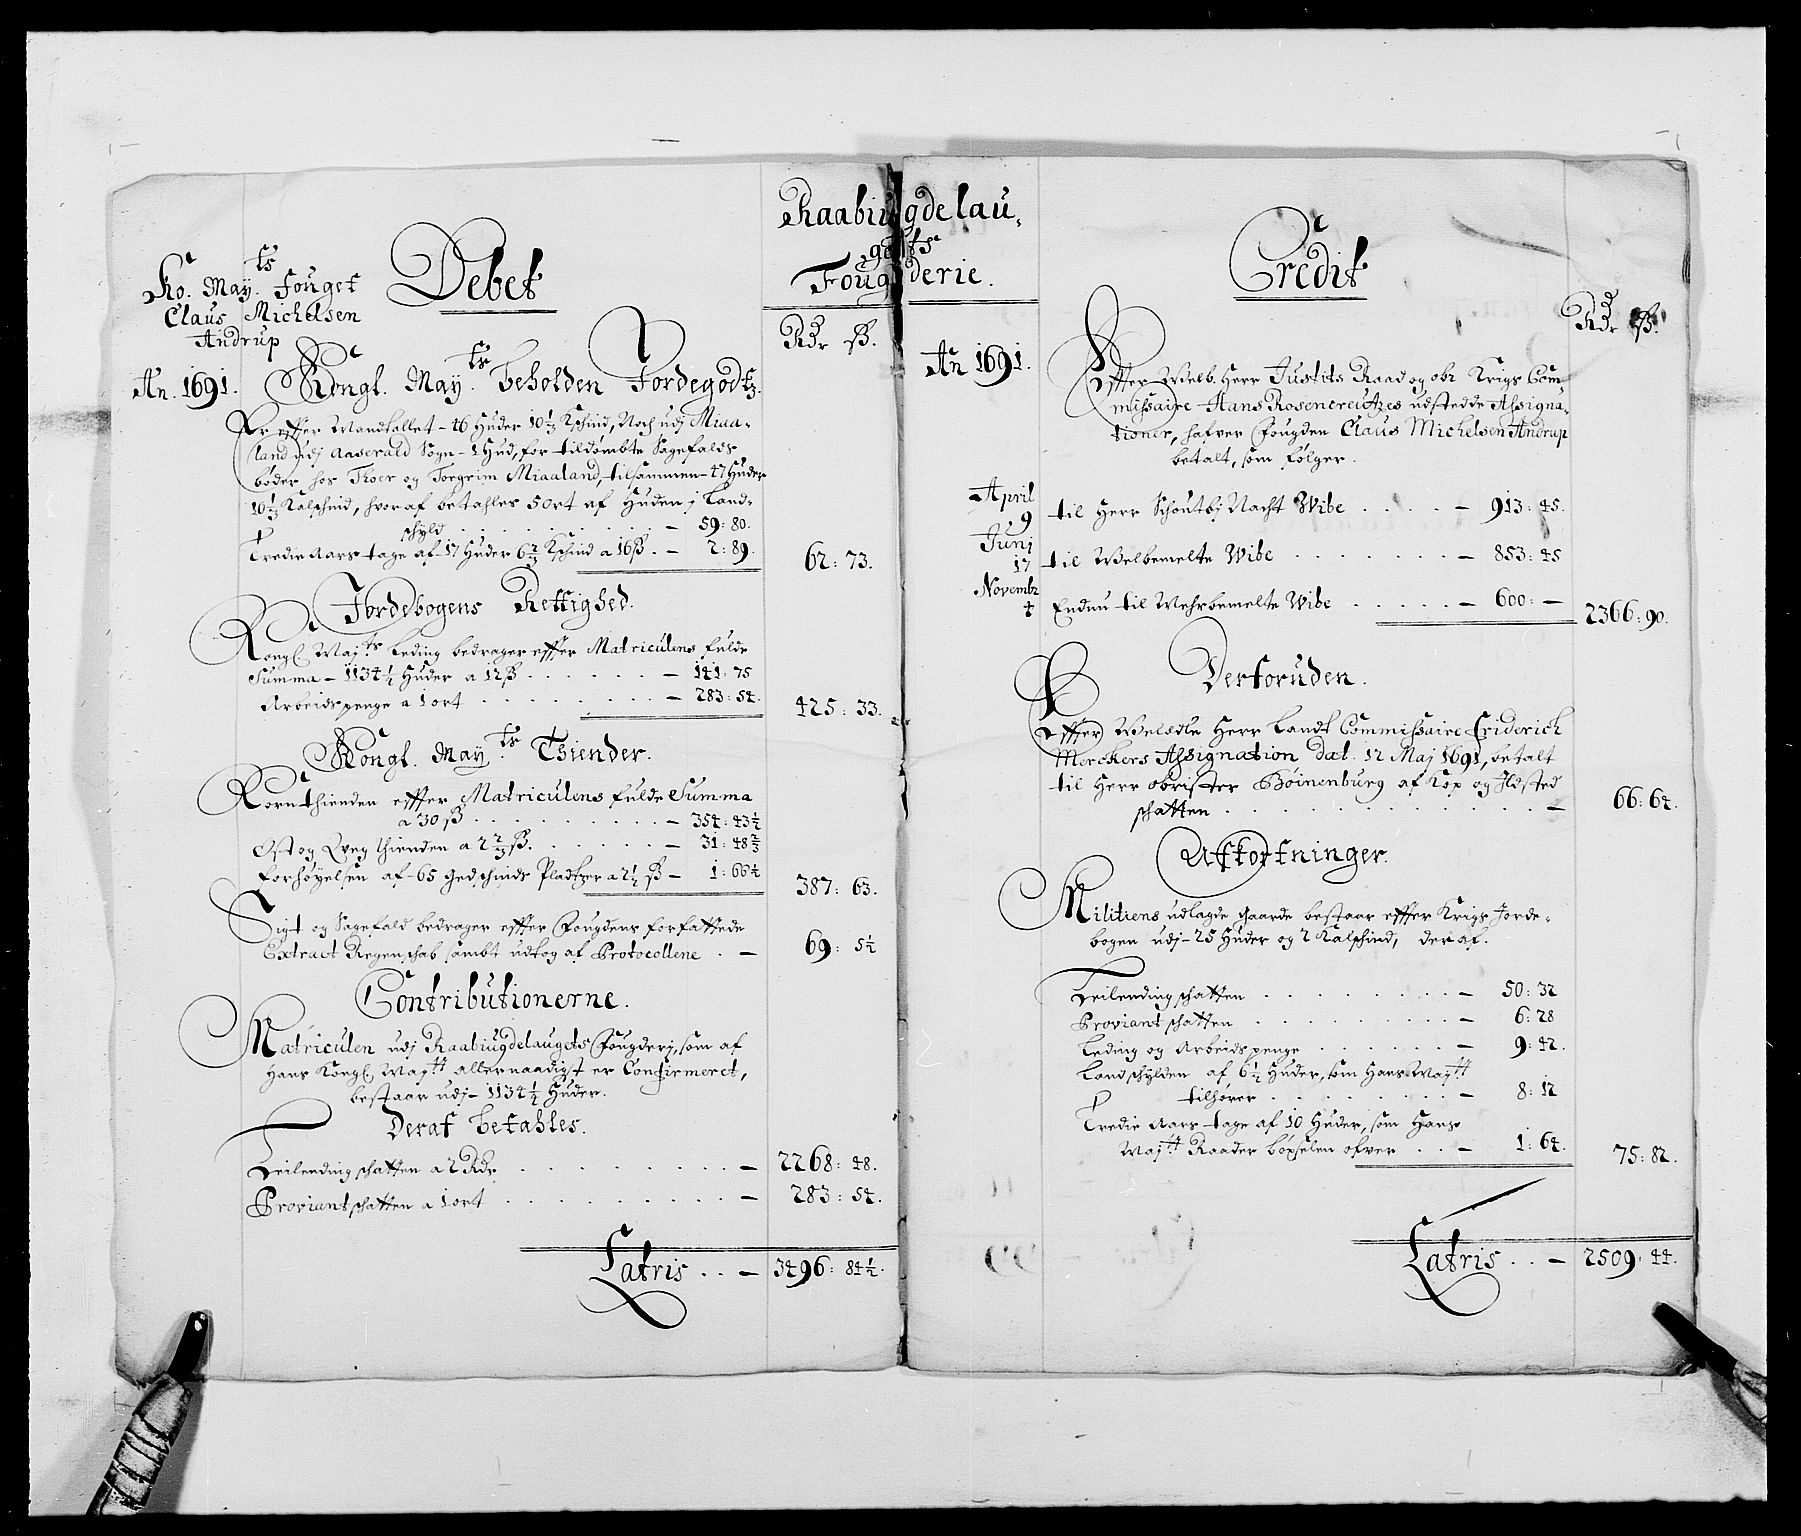 Raabiugdelau-
gets
Fougderie.
Ko. May.ts Fouget
Claus Michelsen
Andrup
Debet
Rdr ß.
An. 1691.
Kongl. May.ts beholden Jordegodtz.
Er effter Mandtallet - 46 Huder 10 1/3 Kschind, Noch udj Miaa-
land udj Aaserald Sogn - 1 Hud, for tildømbte Sagefalds
bøder hos Thoer og Torgrim Miaaland, tilsammen - 47 Huder
10 1/3 Kalschind, hvoraf betahles 5 ort af Huden j Land-
schyld . . . . . . . . . . — 59: 80.
Tredie Aars tage af 17 Huder 6 2/3 Kschind a 16 ß . — 2: 89.
62: 73.
Jordebogens Rettighed.
Kongl Maj.ts Leding bedrager effter Matriculens fulde
Summa - 1134 1/2 Huder a 12 ß . . . . . . — 141: 75
Arbeidspenge a 1 ort . . . . . . . . — 283: 54.
425: 33.
Kongl. May.ts Thiender.
Kornthienden effter Matriculens fulde Summa
a 30 ß . . . . . . . . . — 354: 43 1/2
Ost og Qveg thienden a 2 2/3 ß. . . . . . — 31: 48 2/3
Forhøyelsen af - 65 Gedschinds Pladtzer a 2 1/2 ß — 1: 66 1/2
387: 63.
Sigt og Sagefald bedrager effter Fougdens forfattede
Extract Regenschab sambt udtog af Protocollene . — 69: 5 1/2
Contributionerne.
Matriculen udj Raabiugdelaugets Fougderj, som af
Hans Kongl Maj.tt allernaadigst er Confirmeret,
bestaar udj - 1134 1/2 Huder.
Deraf betahles.
Leilending schatten a 2 Rdr . . . . . . . . — 2268: 48.
Proviant schatten a 1 ort . . . . . . . . . — 283: 54.
Latris . . — 3496: 84 1/2.
Credit
Rdr ß.
An 1691.
Effter Welb. Herr Justits Raad og obr Krigs Com-
missaire Hans Rosencreutzes udstedde Assigna-
tioner, hafver Fougden Claus Michelsen Andrup
betalt, som følger.
April
9 til Herr Schoutbj Nacht Wibe . . . . . — 913: 45.
Junj
17 til Welbemelte Wibe . . . . . . . — 853: 45
Novembr
4 Endnu til Mehrbemelte Wibe . . . . . — 600: —
2366: 90.
Derforuden.
Effter Weledle Herr Landt Commissaire Friderich
Merckers Assignation dat. 12 Maj 1691, betalt
til Herr obrister Bøinenburg af Kop og Ildsted
schatten . . . . . . . . . . . . — 66: 64.
Afkortninger.
Militiens udlagde Gaarde bestaar effter Krigs Jorde-
bogen udj - 25 Huder og 2 Kalschind, deraf.
Leilending schatten . . . . . . . . — 50: 32
Proviant schatten . . . . . . . . . — 6: 28
Leding og Arbeidspenge . . . . . . . — 9: 42.
Landschylden af 6 1/2 Huder, som Hans Maj.tt
tilhører . . . . . . . . — 8: 12
Tredie Aars tage af 10 Huder, som Hans
Maj.tt Raader bøxselen ofver . . — 1: 64.
75: 82.
Latris . . — 2509: 44.